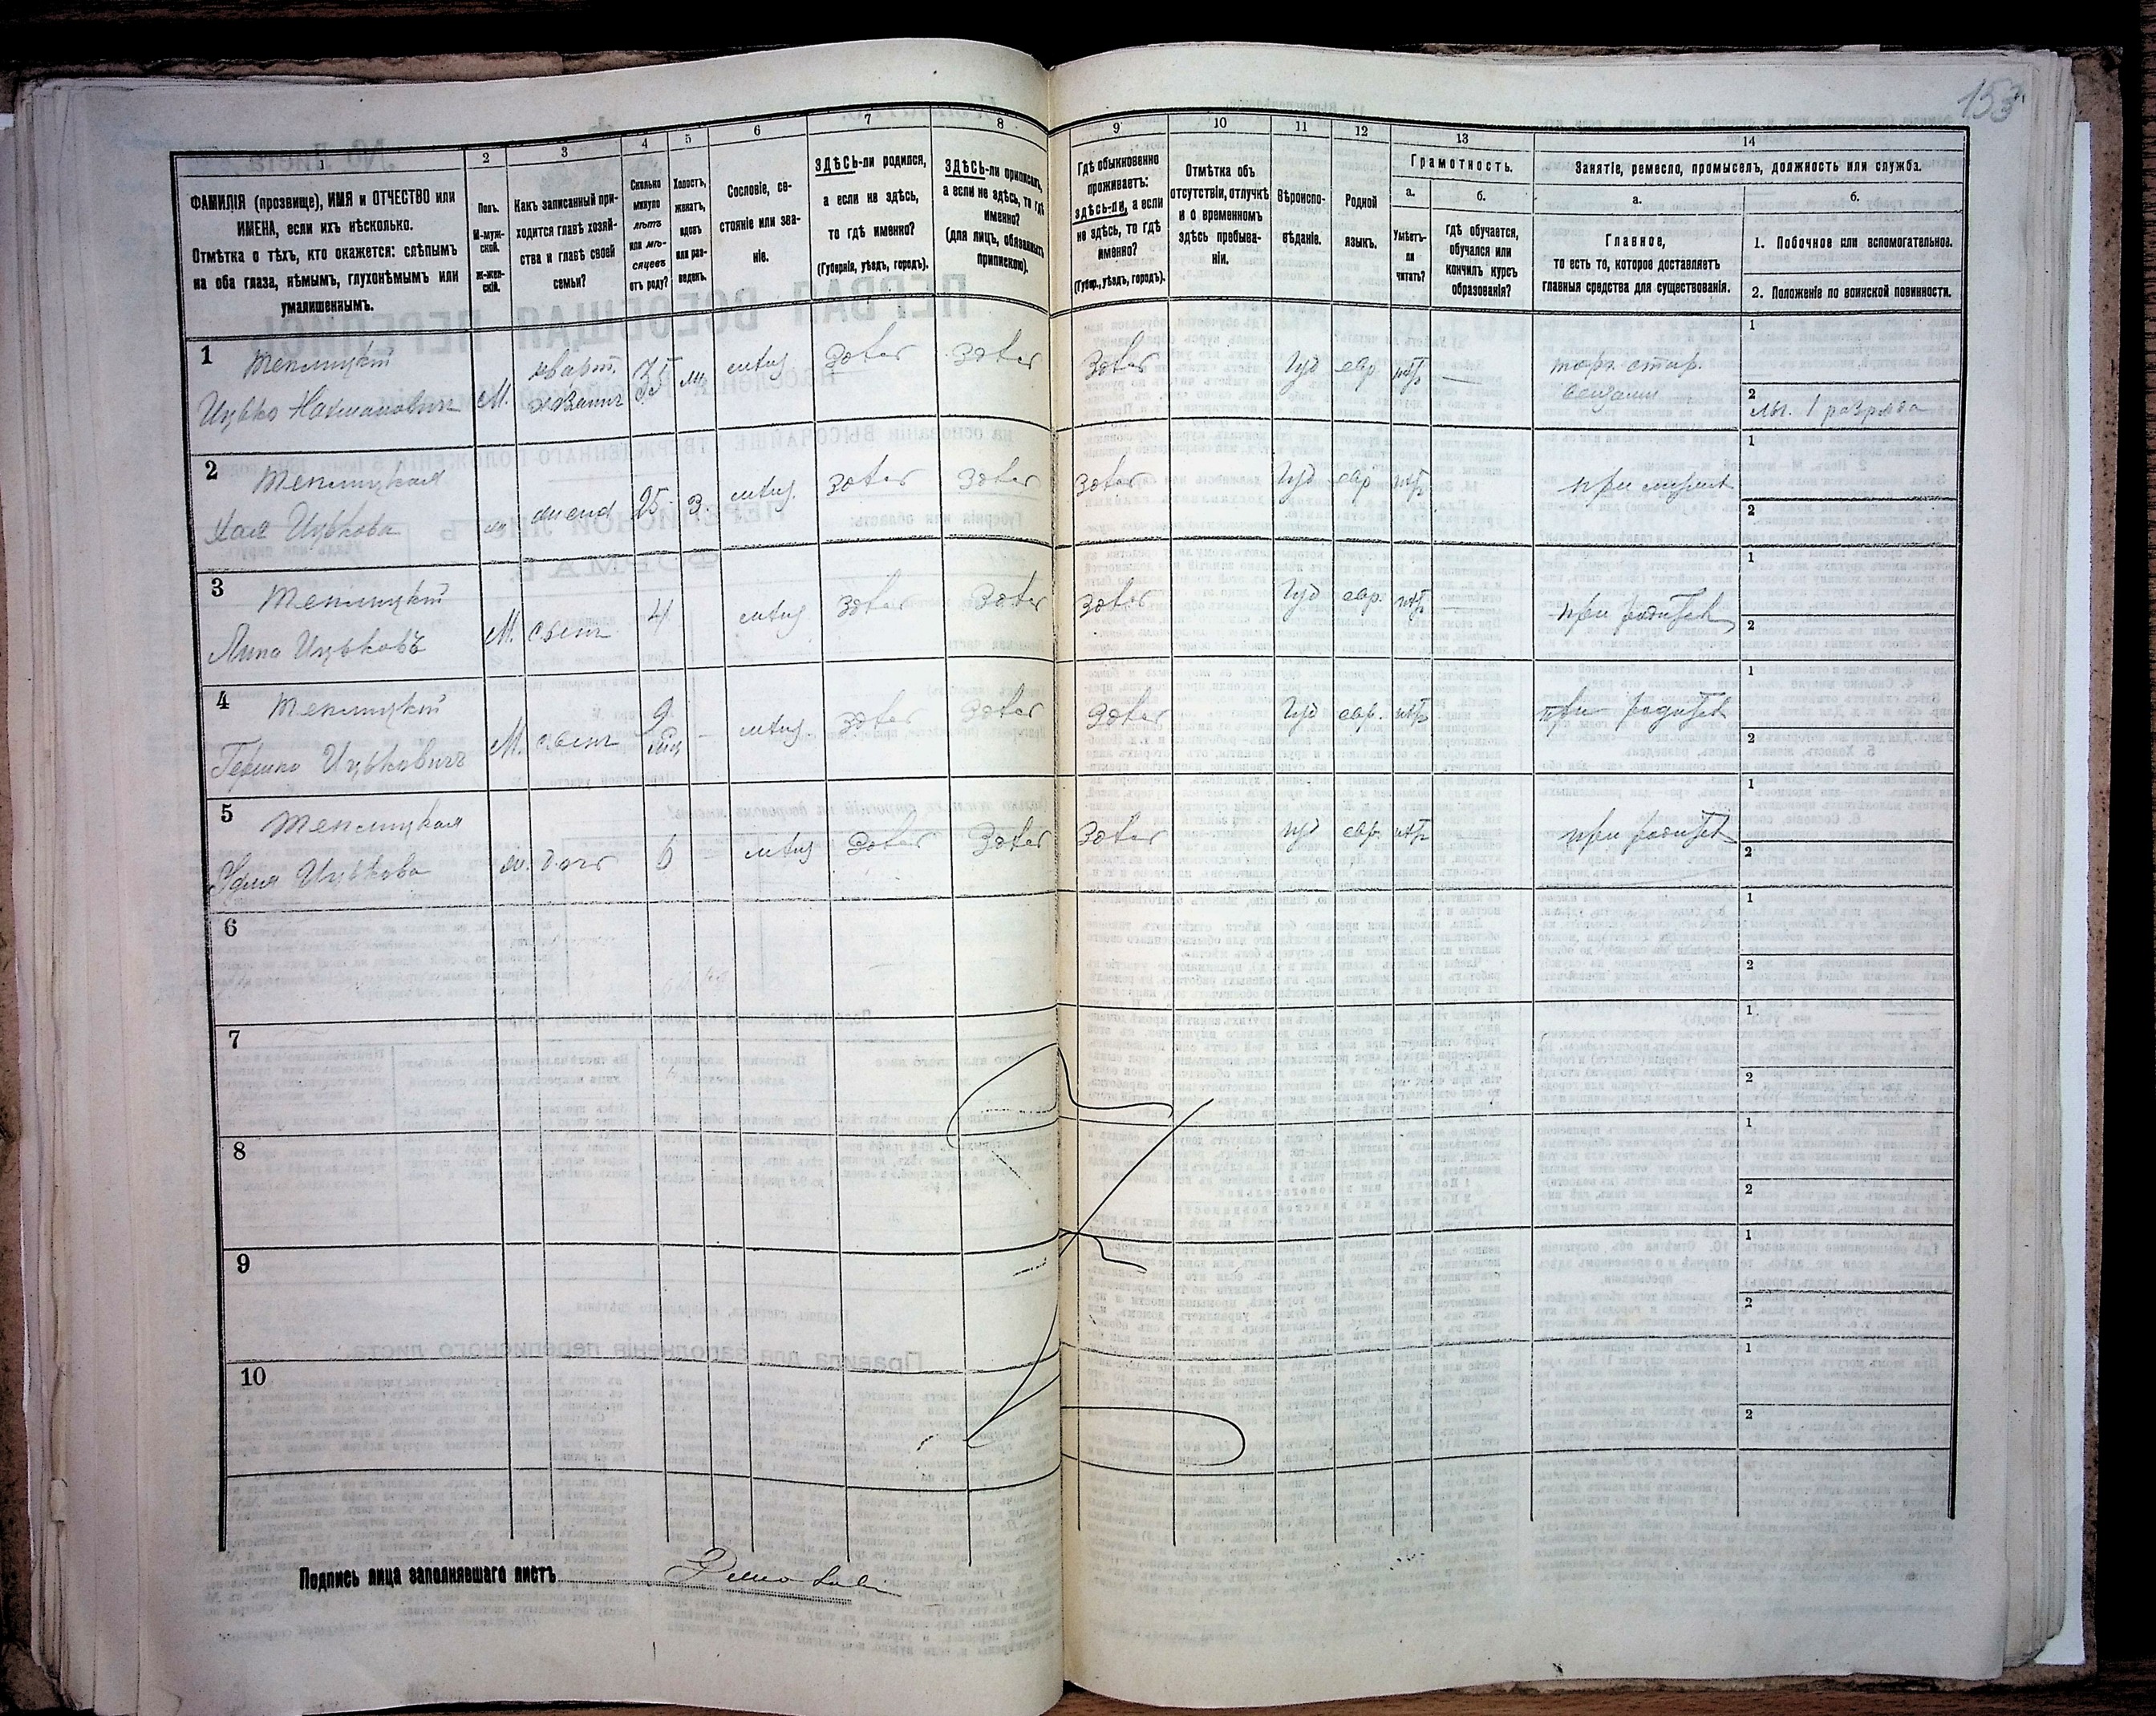 153
1
2
3
4
5
6
7
8
9
10
11
12
13
14
ФАМИЛІЯ (прозвище), ИМЯ и ОТЧЕСТВО или
ИМЕНА, если ихъ нѣсколько.
Отмѣтка о тѣхъ, кто окажется: слѣпымъ
на оба глаза, нѣмымъ, глухонѣмымъ или
умалишеннымъ.
Полъ.
М-муж-
ской.
Ж-жен-
скій.
Какъ записанный при-
ходится главѣ хозяй-
ства и главѣ своей
семьи?
Сколько
минуло
лѣтъ
или мѣ-
сяцевъ
отъ роду?
Холостъ,
женатъ,
вдовъ
или раз-
веденъ.
Сословіе, со-
стояніе или зва-
ніе.
ЗДѢСЬ-ли родился,
а если не здѣсь,
то гдѣ именно?
(Губернія, уѣздъ, городъ).
ЗДѢСЬ-ли приписанъ,
а если не здѣсь, то гдѣ
именно?
(для лицъ, обязанныхъ
припискою).
Гдѣ обыкновенно
проживаетъ:
здѣсь-ли, а если
не здѣсь, то гдѣ
именно?
(Губер., уѣздъ, городъ).
Отмѣтка объ
отсутствіи, отлучкѣ
и о временномъ
здѣсь пребыва-
ніи.
Вѣроиспо-
вѣданіе.
Родной
языкъ.
Грамотность.
а.
б.
Умѣетъ-
ли
читать?
гдѣ обучается,
обучался или
кончилъ курсъ
образованія?
Занятіе, ремесло, промыселъ, должность или служба.
а.
б.
Главное,
то есть то, которое доставляетъ
главныя средства для существованія.
1. Побочное или вспомогательное.
2. Положеніе по воинской повинности.
1
Теплицкій
Ицько Нахмановичъ
М.
кварт.
хозяинъ
мѣщ
Здѣсь
Здѣсь
Здѣсь
Іуд
евр
нѣтъ
—
торг. стар.
вещами
1
2
1 разряда
2
Теплицкая
Хая Ицькова
жена
25
з.
мѣщ.
Здѣсь
Здѣсь
Здѣсь
Іуд
евр
нѣтъ
при мужѣ
1
2
3
Теплицкій
Ицьковъ
М.
сынъ
4
мѣщ
Здѣсь
Здѣсь
Здѣсь
Іуд
евр.
нѣтъ
—
при родител
1
2
4
Теплицкій
Гершко Ицьковичъ
М.
сынъ
9
мѣц
-
мѣщ.
Здѣсь
Здѣсь
Здѣсь
Іуд
евр.
нѣтъ
при родител
1
2
5
Теплицкая
Ицькова
ж.
дочь
6
мѣщ
Здѣсь
Здѣсь
Здѣсь
Іуд
евр.
нѣтъ
при родител
1
2
6
1
2
7
1.
2
8
1
2
9
1
2
10
1
2
Подпись лица заполнявшаго листъ